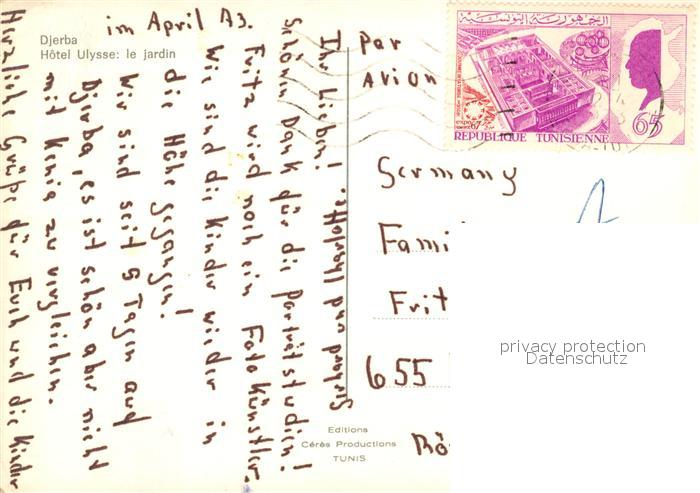 im April 73.
Djerba
Hôtel Ulysse: le jardin
Ihr Lieben!
Schönn Dank für die Porträtstudien!
Fritz wird noch ein Fotokünstler.
Wie sind die Kinder wieder in
die Höhe gegangen!
Wir sind seit 5 Tagen auf
Djerba, es ist schön aber nicht
mit Kenia zu vergleichen.
Herzliche Grüße für Euch und die Kinder
Par
Avion
الجمهورية التونسية
expo 67
65
REPUBLIQUE TUNISIENNE
Germany
Fami
Frit
655
Rö
privacy protection
Datenschutz
Editions
Cérès Productions
TUNIS